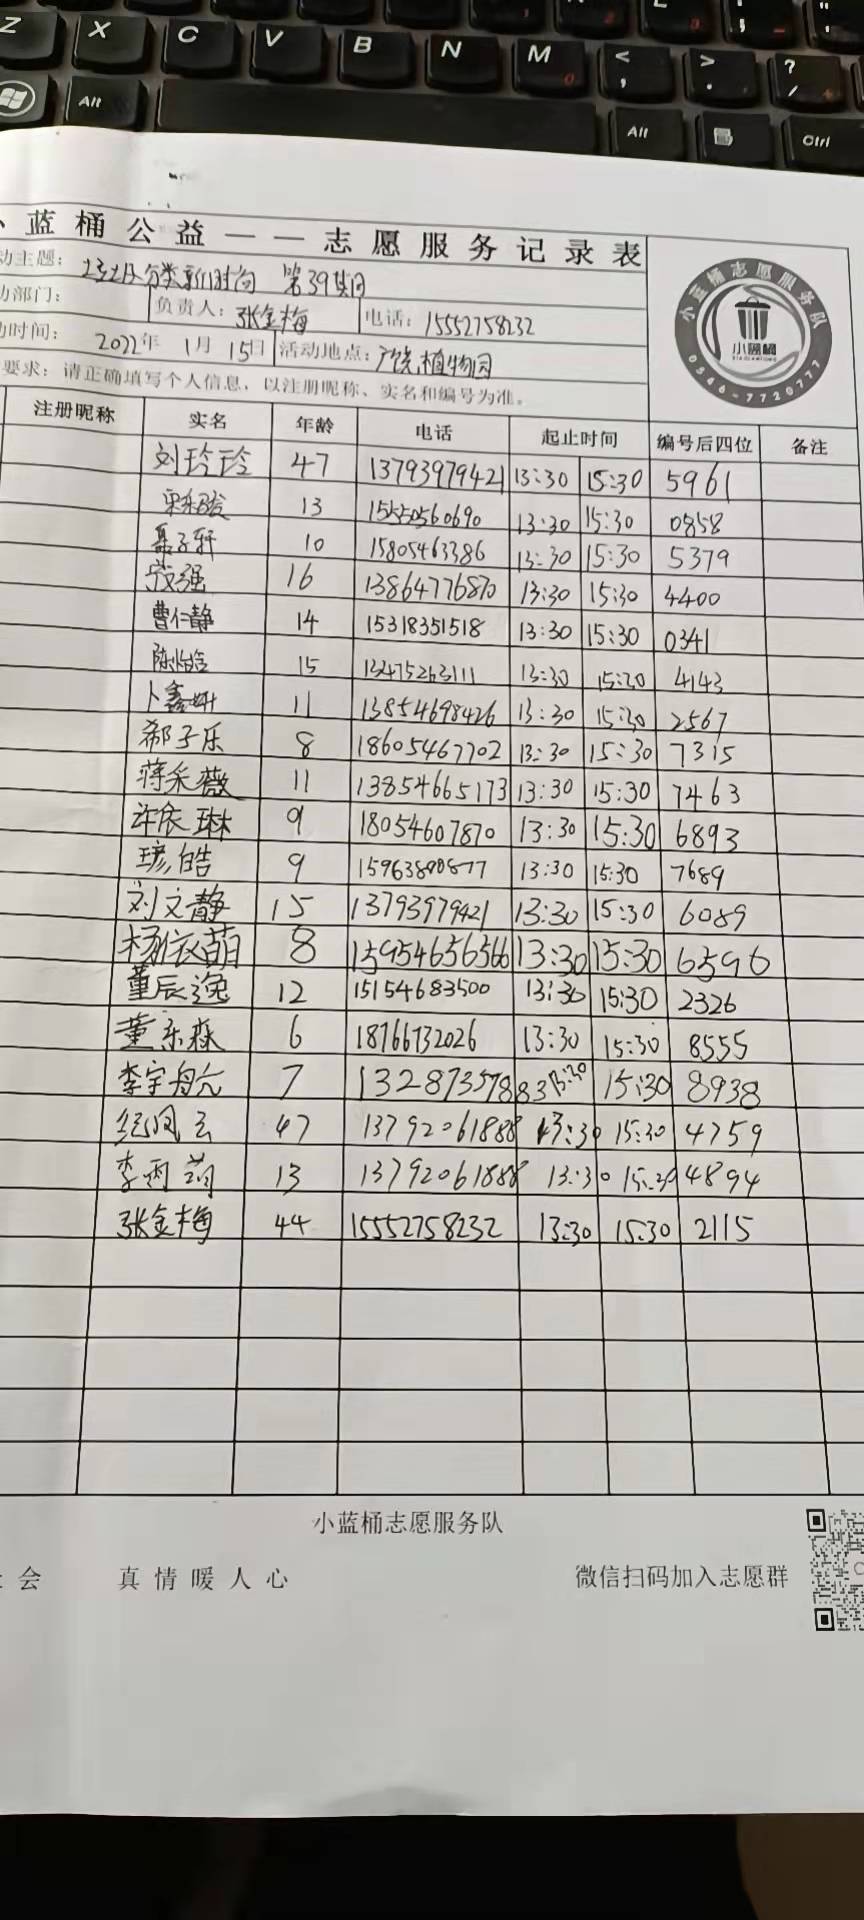 Z X C V B N M < , > . ? /
Alt Alt Ctrl
蓝桶公益——志愿服务记录表
动主题：垃圾分类新时尚 第39期
动部门： 负责人：张金梅 电话：15552758232
动时间：2022年1月15日 活动地点：广饶植物园
要求：请正确填写个人信息，以注册昵称、实名和编号为准。
小蓝桶志愿服务队
小蓝桶
0546-7720777
注册昵称 实名 年龄 电话 起止时间 编号后四位 备注
刘玲玲 47 13793979421 13:30 15:30 5961
13 15550560690 13:30 15:30 0858
聂子轩 10 15805463386 13:30 15:30 5379
强 16 13864776870 13:30 15:30 4400
曹仁静 14 15318351518 13:30 15:30 0341
陈怡晗 15 13475263111 13:30 15:30 4143
卜鑫 11 13854698426 13:30 15:30 2567
郗子乐 8 18605467702 13:30 15:30 7315
蒋采薇 11 13854665173 13:30 15:30 7463
许宸琳 9 18054607870 13:30 15:30 6893
皓 9 13:30 15:30 7689
刘文静 15 13793979421 13:30 15:30 6089
杨依萌 8 15954656566 13:30 15:30 6596
董辰逸 12 15154683500 13:30 15:30 2326
董东森 6 18766732026 13:30 15:30 8555
李宇航 7 13287357883 13:30 15:30 8938
纪凤云 47 13792061888 13:30 15:30 4759
李雨萌 13 13792061888 13:30 15:30 4894
张金梅 44 15552758232 13:30 15:30 2115
小蓝桶志愿服务队
会 真情暖人心 微信扫码加入志愿群